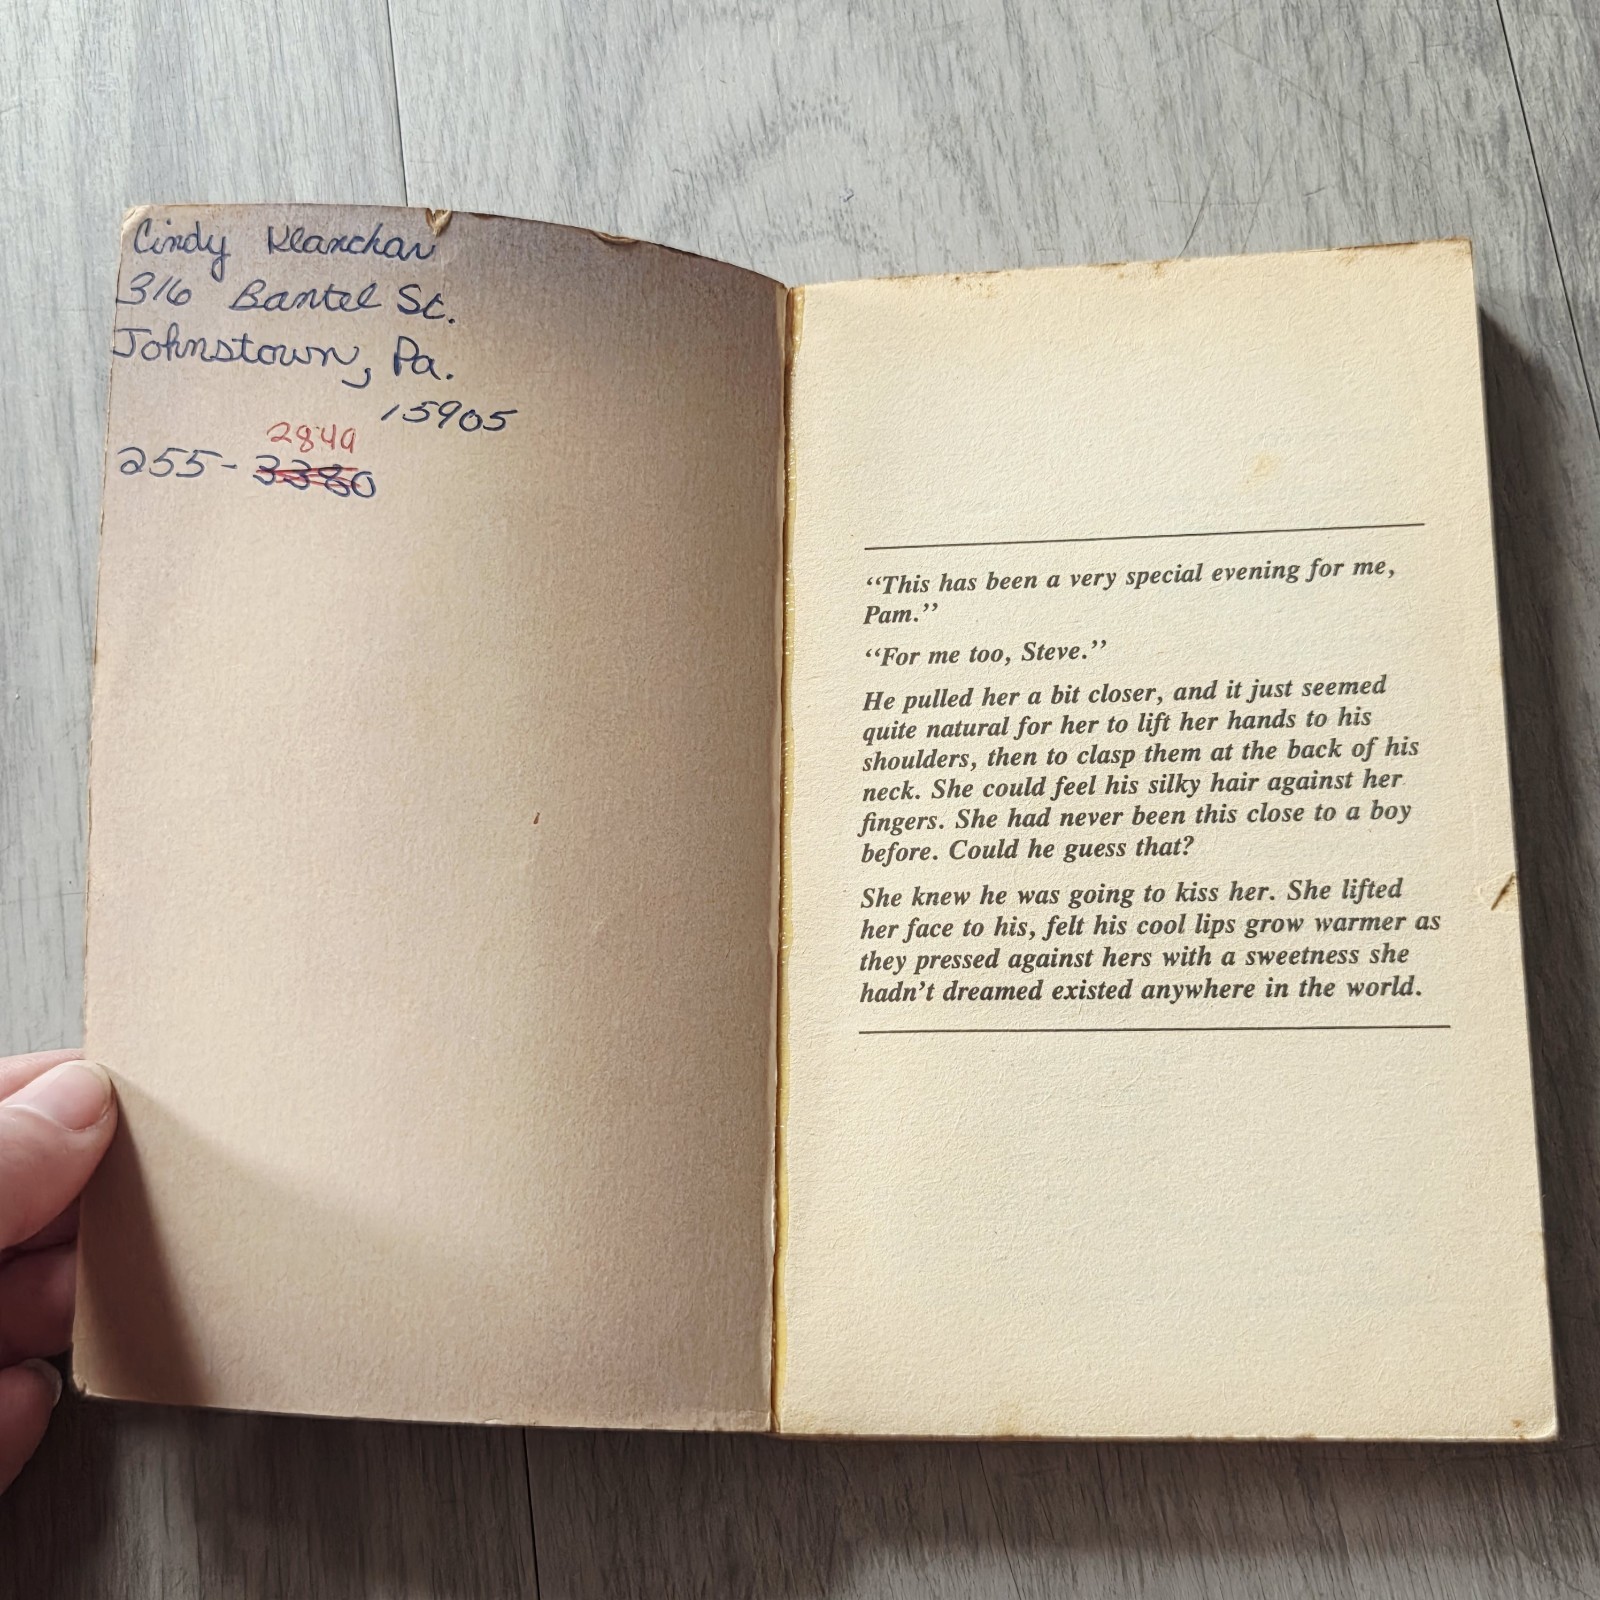 Cindy Klanchar
316 Bantel St.
Johnstown, Pa.
15905
2849
255-3380
“This has been a very special evening for me,
Pam.”
“For me too, Steve.”
He pulled her a bit closer, and it just seemed
quite natural for her to lift her hands to his
shoulders, then to clasp them at the back of his
neck. She could feel his silky hair against her
fingers. She had never been this close to a boy
before. Could he guess that?
She knew he was going to kiss her. She lifted
her face to his, felt his cool lips grow warmer as
they pressed against hers with a sweetness she
hadn’t dreamed existed anywhere in the world.